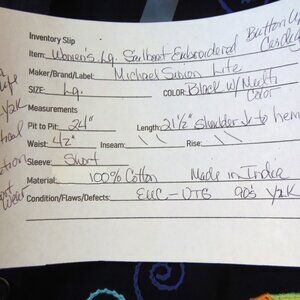 Inventory Slip
Item: Women's Lg. Sailboat Embroidered Button Up
Maker/Brand/Label: Michael Simon Lite
SIZE: Lg. COLOR: Black w/ Multi Color
Measurements
Pit to Pit: 24" Length: 21 1/2" shoulder to hem
Waist: 42" Inseam: \ \ Rise: \ \
Sleeve: Short
Material: 100% Cotton Made in India
Condition/Flaws/Defects: EUC-VTG 90's Y2K
life
Y2K
Wear